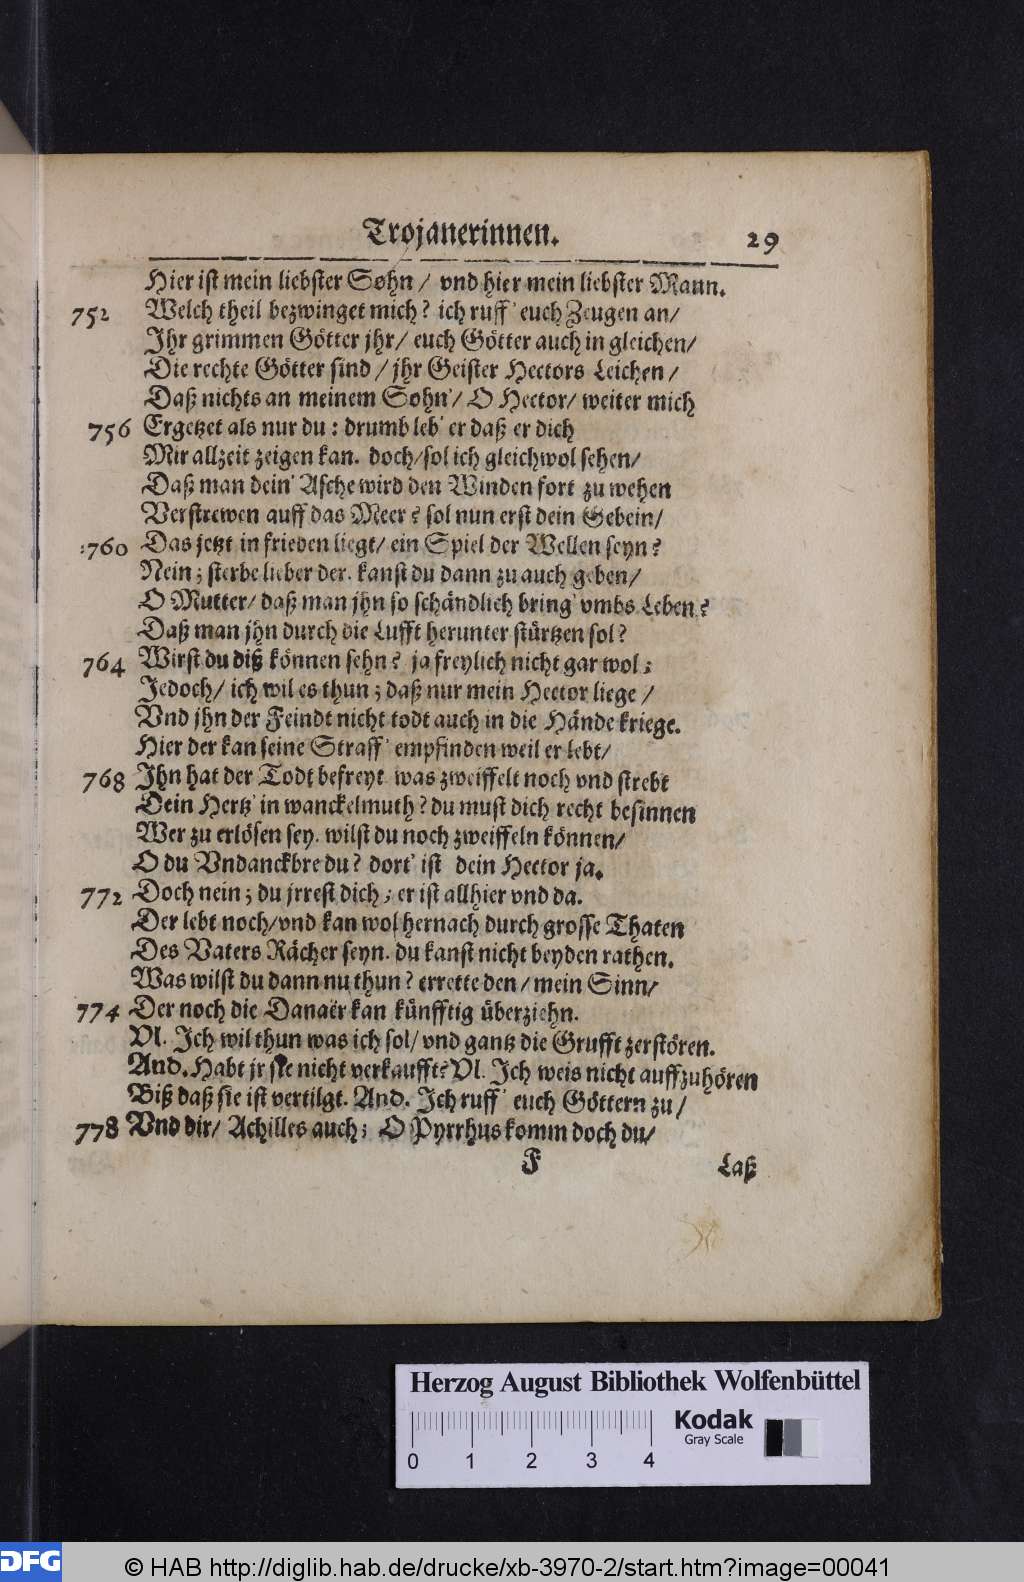 Trojanerinnen. 29
Hier ist mein liebster Sohn / vnd hier mein liebster Mann.
752 Welch theil bezwinget mich? ich ruff' euch Zeugen an/
Jhr grimmen Götter jhr/ euch Götter auch in gleichen/
Die rechte Götter sind / jhr Geister Hectors Leichen /
Daß nichts an meinem Sohn'/ O Hector/ weiter mich
756 Ergetzet als nur du : drumb leb' er daß er dich
Mir allzeit zeigen kan. doch/sol ich gleichwol sehen/
Daß man dein' Asche wird den Winden fort zu wehen
Verstrewen auff das Meer? sol nun erst dein Gebein/
:760 Das jetzt in frieden liegt/ ein Spiel der Wellen seyn?
Nein; sterbe lieber der. kanst du dann zu auch geben/
O Mutter/ daß man jhn so schändlich bring' vmbs Leben?
Daß man jhn durch die Lufft herunter stürtzen sol?
764 Wirst du diß können sehn? ja freylich nicht gar wol;
Jedoch/ ich wil es thun; daß nur mein Hector liege /
Vnd jhn der Feindt nicht todt auch in die Hände kriege.
Hier der kan seine Straff' empfinden weil er lebt/
768 Jhn hat der Todt befreyt. was zweiffelt noch vnd strebt
Dein Hertz' in wanckelmuth? du must dich recht besinnen
Wer zu erlösen sey. wilst du noch zweiffeln können/
O du Vndanckbre du? dort' ist dein Hector ja.
772 Doch nein; du jrrest dich; er ist allhier vnd da.
Der lebt noch/vnd kan wol hernach durch grosse Thaten
Des Vaters Rächer seyn. du kanst nicht beyden rathen.
Was wilst du dann nu thun? errette den/ mein Sinn/
774 Der noch die Danaër kan künfftig überziehn.
Vl. Jch wil thun was ich sol/ vnd gantz die Grufft zerstören.
And. Habt jr sie nicht verkaufft? Vl. Jch weis nicht auffzuhören
Biß daß sie ist vertilgt. And. Jch ruff' euch Göttern zu/
778 Vnd dir/ Achilles auch; O Pyrrhus komm doch du/
F Laß
Herzog August Bibliothek Wolfenbüttel
Kodak
Gray Scale
0 1 2 3 4
DFG © HAB http://diglib.hab.de/drucke/xb-3970-2/start.htm?image=00041